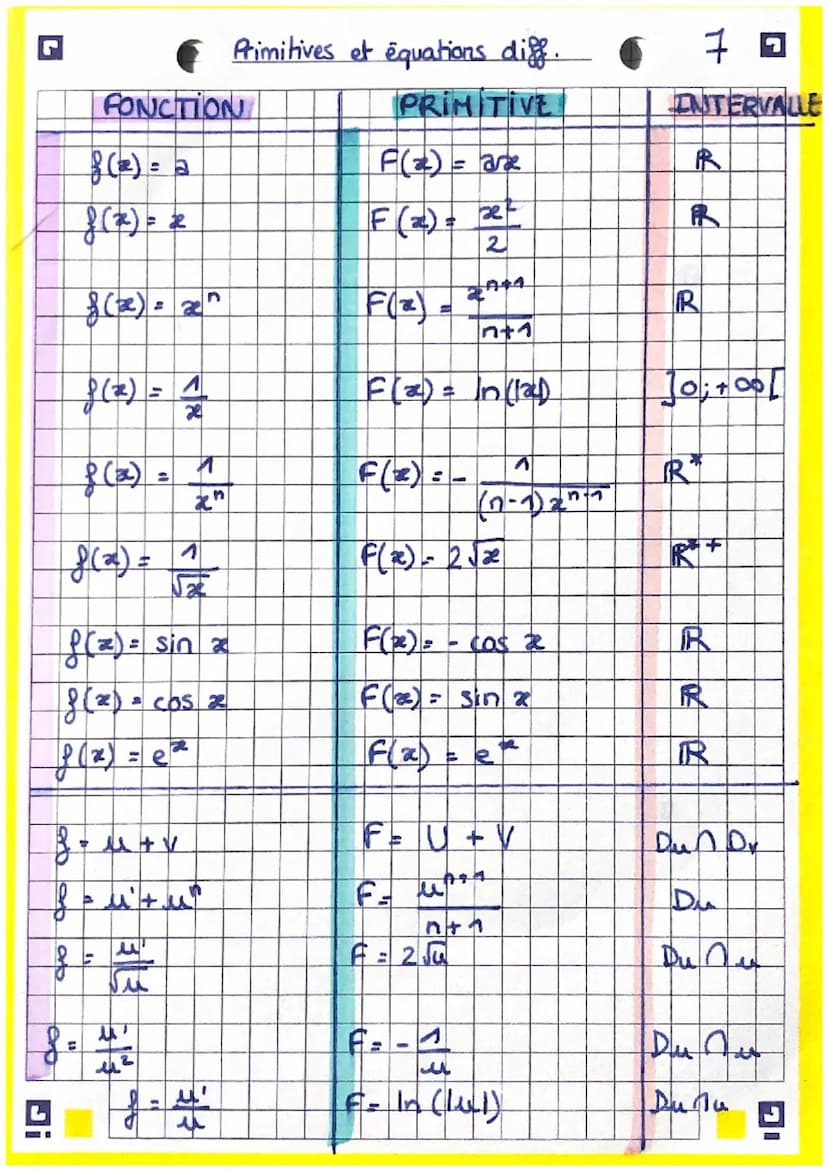 Primitives et équations diff. 7
FONCTION PRIMITIVE INTERVALLE
f(x) = a F(x) = ax ℝ
f(x) = x F(x) = x²/2 ℝ
f(x) = xⁿ F(x) = xⁿ⁺¹/(n+1) ℝ
f(x) = 1/x F(x) = ln(|x|) ]0;+∞[
f(x) = 1/xⁿ F(x) = - 1/((n-1)xⁿ⁻¹) ℝ*
f(x) = 1/√x F(x) = 2√x ℝ*⁺
f(x) = sin x F(x) = - cos x ℝ
f(x) = cos x F(x) = sin x ℝ
f(x) = eˣ F(x) = eˣ ℝ
f = u + v F = U + V Du ∩ Dv
f = u' + uⁿ F = uⁿ⁺¹/(n+1) Du
f = u'/√u F = 2√u Du ∩ u
f = u'/u² F = - 1/u Du ∩ u
f = u'/u F = ln(|u|) Du ∩ u